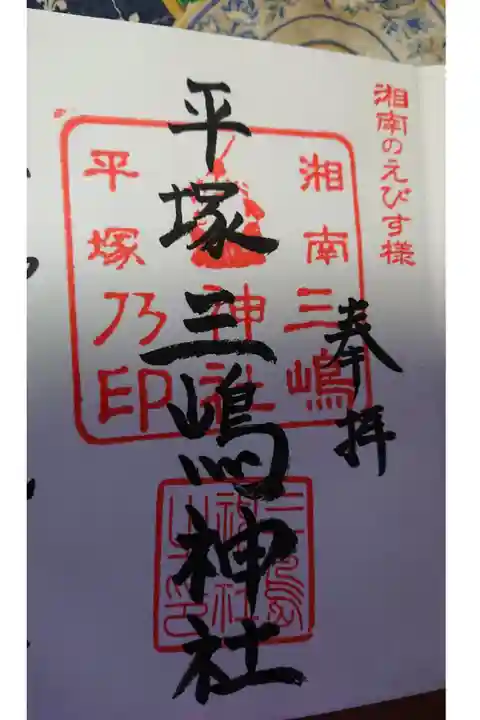 湘南のえびす様
奉拝
平塚三嶋神社
湘南三嶋
神社
平塚乃印
三嶋
神社
之印